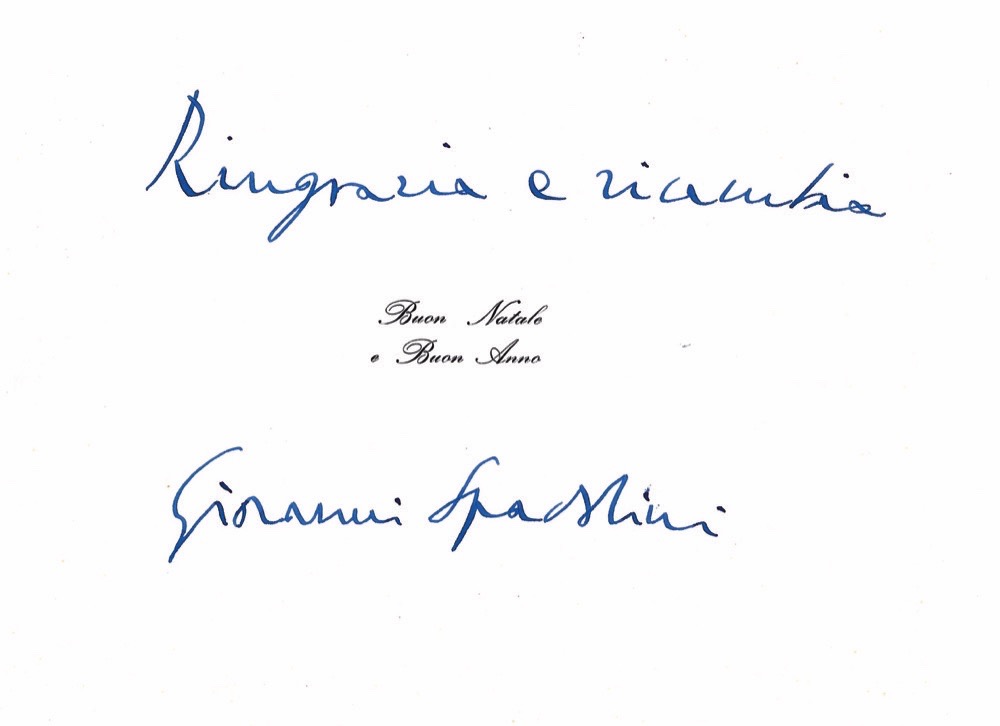 Ringrazia e ricambia
Buon Natale
e Buon Anno
Giovanni Spadolini